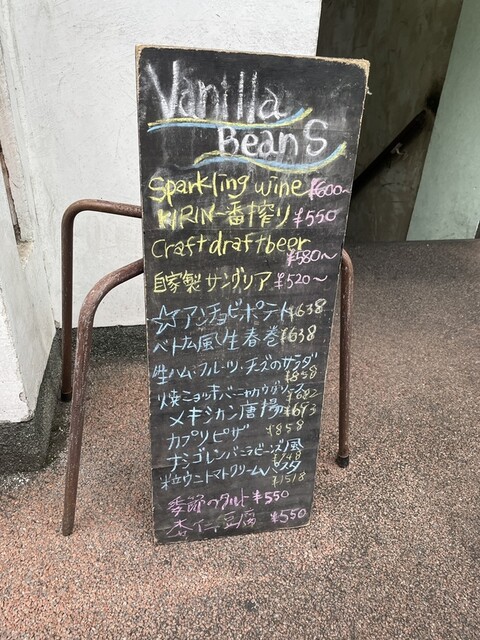 Vanilla
BeanS
Sparkling wine ¥600～
KIRIN一番搾り ¥550
Craftdraftbeer
¥580～
自家製サングリア ¥520～
☆アンチョビポテト ¥638
ベトナム風生春巻 ¥638
生ハム・フルーツ・チーズのサラダ
¥858
焼ニョッキバーニャカウダソース
¥682
メキシカン唐揚 ¥693
カプリピザ ¥858
ナシゴレンバニラビーンズ風
粒ウニトマトクリームパスタ
¥1518
季節のタルト ¥550
杏仁豆腐 ¥550